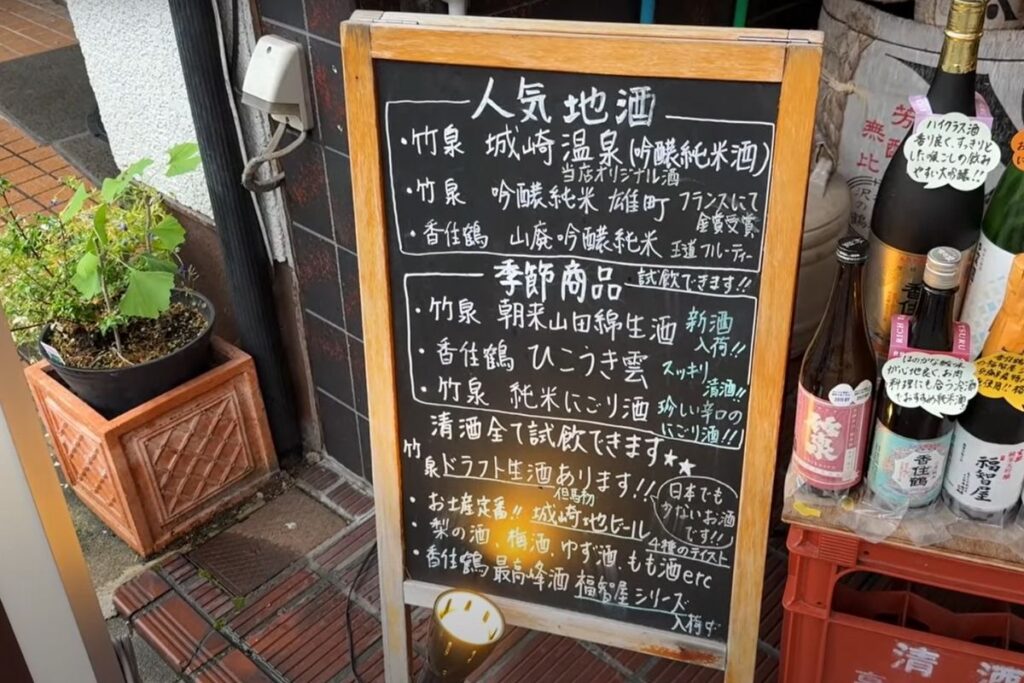 人気地酒
・竹泉 城崎温泉(吟醸純米酒)
当店オリジナル酒
・竹泉 吟醸純米 雄町 フランスにて
金賞受賞
・香住鶴 山廃吟醸純米 王道フルーティー
季節商品 試飲できます!!
・竹泉 朝来山田錦生酒 新酒
入荷!!
・香住鶴 ひこうき雲 スッキリ
清酒!!
・竹泉 純米にごり酒 珍しい辛口の
にごり酒!!
清酒全て試飲できます★★
竹泉ドラフト生酒あります!!
日本でも
少ないお酒
です!!
但馬初
・お土産定番!! 城崎地ビール
4種のテイスト
・梨の酒、梅酒、ゆず酒、もも酒etc
・香住鶴 最高峰酒 福智屋シリーズ
入荷ず
ハイクラス酒
香り良く、すっきりと
した喉ごしの飲み
やすい大吟醸!!
ほのかな酸味
が心地良く、お肉
料理にも合う冷酒
でおすすめ純米酒
竹泉
香住鶴
福智屋
無比
清酒